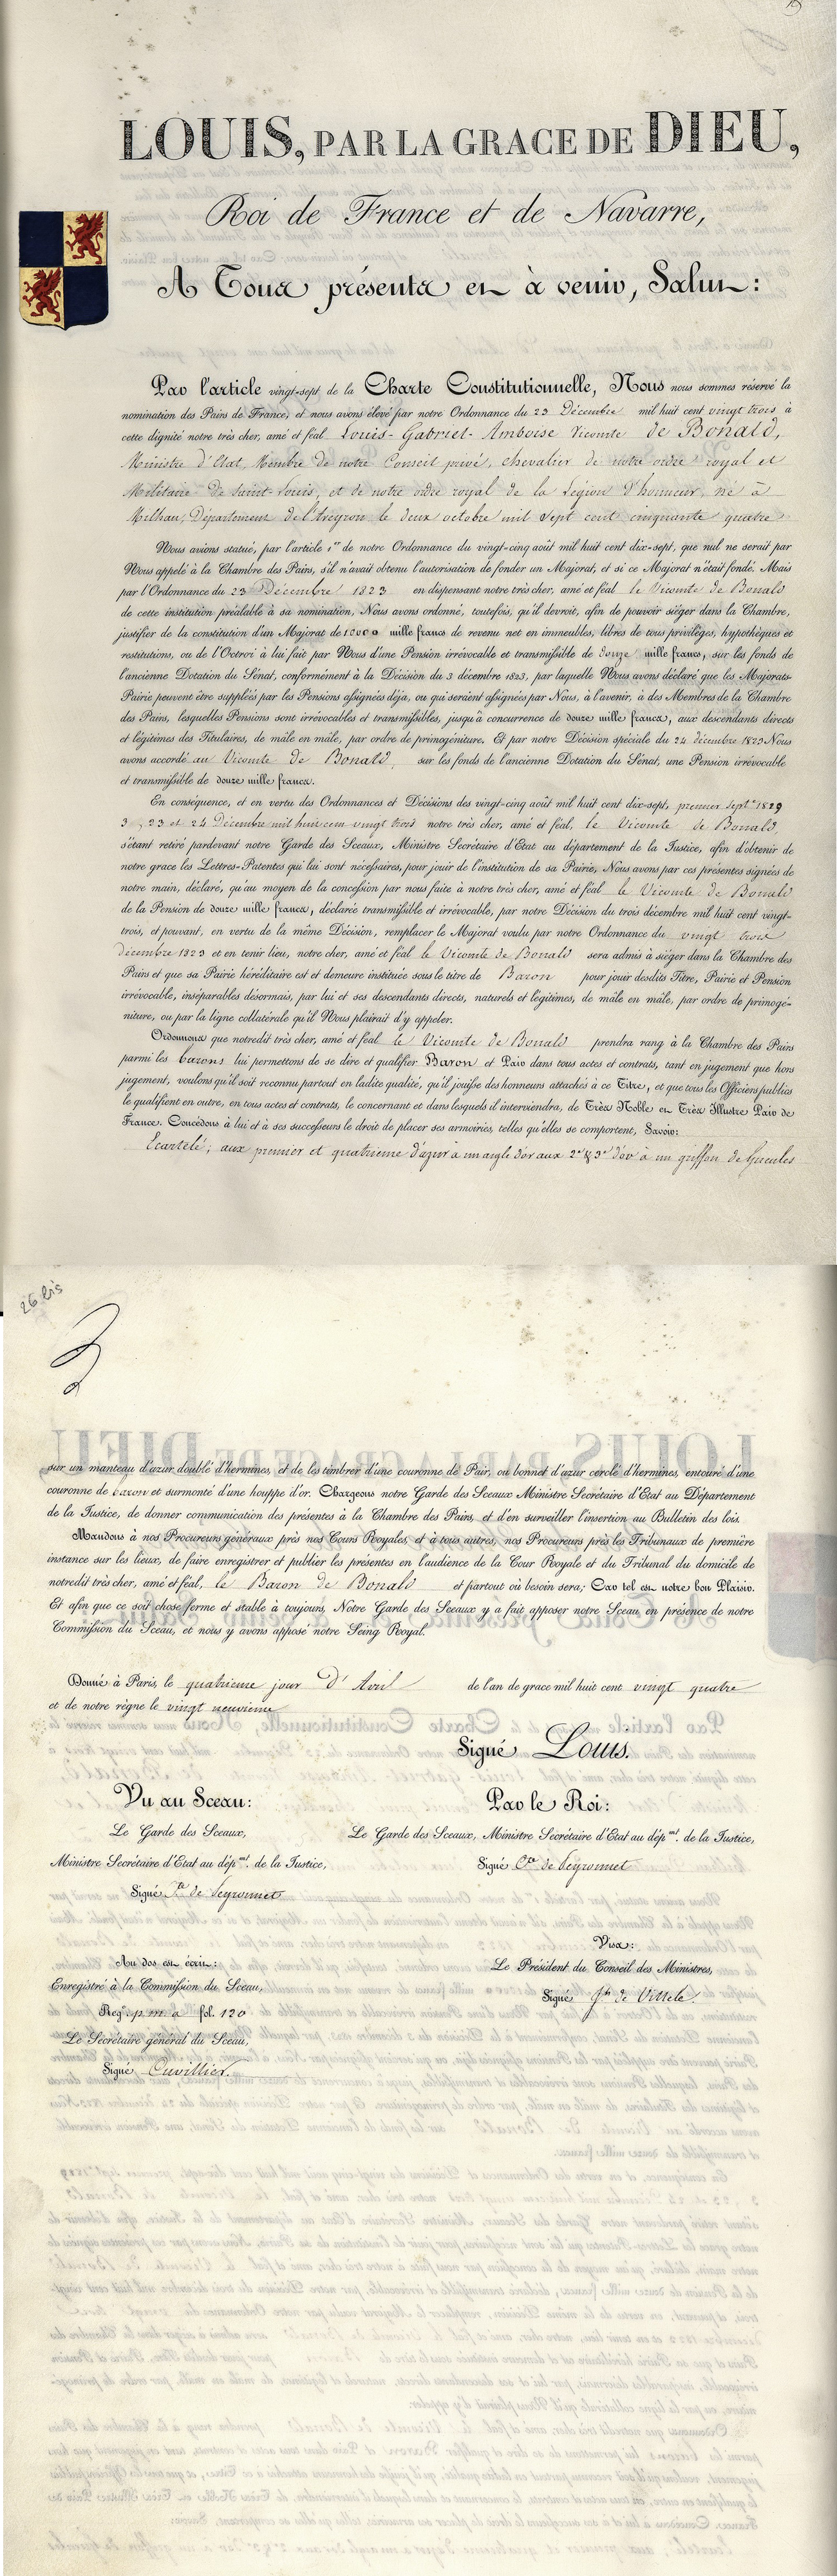 LOUIS, PAR LA GRACE DE DIEU,
Roi de France et de Navarre,
A Tous présents et à venir, Salut:
Par l'article vingt-sept de la Charte Constitutionnelle, Nous nous sommes réservé la
nomination des Pairs de France, et nous avons élevé par notre Ordonnance du 23 Décembre mil huit cent vingt trois à
cette dignité notre très cher, amé et féal Louis-Gabriel-Amboise Vicomte de Bonald,
Ministre d'Etat, Membre de notre Conseil privé, chevalier de notre ordre royal et
Militaire de Saint-Louis, et de notre ordre royal de la Légion d'honneur, né à
Milhau, Département de l'Aveyron le deux octobre mil sept cent cinquante quatre
Nous avions statué, par l'article 1er de notre Ordonnance du vingt-cinq août mil huit cent dix-sept, que nul ne serait par
Nous appelé à la Chambre des Pairs, s'il n'avait obtenu l'autorisation de fonder un Majorat, et si ce Majorat n'était fondé. Mais
par l'Ordonnance du 23 Décembre 1823 en dispensant notre très cher, amé et féal le Vicomte de Bonald
de cette institution préalable à sa nomination, Nous avons ordonné, toutefois, qu'il devroit, afin de pouvoir siéger dans la Chambre,
justifier de la constitution d'un Majorat de 10000 mille francs de revenu net en immeubles, libres de tous privilèges, hypothèques et
restitutions, ou de l'Octroi à lui fait par Nous d'une Pension irrévocable et transmissible de douze mille francs, sur les fonds de
l'ancienne Dotation du Sénat, conformément à la Décision du 3 décembre 1823, par laquelle Nous avons déclaré que les Majorats-
Pairie peuvent être suppléés par les Pensions assignées déja, ou qui seraient assignées par Nous, à l'avenir, à des Membres de la Chambre
des Pairs, lesquelles Pensions sont irrévocables et transmissibles, jusqu'à concurrence de douze mille francs, aux descendants directs
et légitimes des Titulaires, de mâle en mâle, par ordre de primogéniture. Et par notre Décision spéciale du 24 décembre 1823 Nous
avons accordé au Vicomte de Bonald, sur les fonds de l'ancienne Dotation du Sénat, une Pension irrévocable
et transmissible de douze mille francs.
En conséquence, et en vertu des Ordonnances et Décisions des vingt-cinq août mil huit cent dix-sept, premier Septre 1829
3, 23 et 24 Décembre mil huit cent vingt trois notre très cher, amé et féal, le Vicomte de Bonald,
s'étant retiré pardevant notre Garde des Sceaux, Ministre Secrétaire d'Etat au département de la Justice, afin d'obtenir de
notre grace les Lettres-Patentes qui lui sont nécessaires, pour jouir de l'institution de sa Pairie, Nous avons par ces présentes signées de
notre main, déclaré, qu'au moyen de la concession par nous faite à notre très cher, amé et féal le Vicomte de Bonald
de la Pension de douze mille francs, déclarée transmissible et irrévocable, par notre Décision du trois décembre mil huit cent vingt-
trois, et pouvant, en vertu de la même Décision, remplacer le Majorat voulu par notre Ordonnance du vingt trois
décembre 1823 et en tenir lieu, notre cher, amé et féal le Vicomte de Bonald sera admis à siéger dans la Chambre des
Pairs et que sa Pairie héréditaire est et demeure instituée sous le titre de Baron pour jouir desdits Titre, Pairie et Pension
irrévocable, inséparables désormais, par lui et ses descendants directs, naturels et légitimes, de mâle en mâle, par ordre de primogé-
niture, ou par la ligne collatérale qu'il Nous plairait d'y appeler.
Ordonnons que notredit très cher, amé et féal le Vicomte de Bonald prendra rang à la Chambre des Pairs
parmi les barons lui permettons de se dire et qualifier Baron et Pair dans tous actes et contrats, tant en jugement que hors
jugement, voulons qu'il soit reconnu partout en ladite qualité, qu'il jouisse des honneurs attachés à ce Titre, et que tous les Officiers publics
le qualifient en outre, en tous actes et contrats, le concernant et dans lesquels il interviendra, de Très Noble et Très Illustre Pair de
France. Concédons à lui et à ses successeurs le droit de placer ses armoiries, telles qu'elles se comportent, Savoir:
Ecartelé; aux premier et quatrieme d'azur à un aigle d'or aux 2e & 3e d'or à un griffon de Gueules
26 bis
sur un manteau d'azur doublé d'hermines, et de les timbrer d'une couronne de Pair, ou bonnet d'azur cerclé d'hermines, entouré d'une
couronne de baron et surmonté d'une houppe d'or. Chargeons notre Garde des Sceaux Ministre Secrétaire d'Etat au Département
de la Justice, de donner communication des présentes à la Chambre des Pairs, et d'en surveiller l'insertion au Bulletin des lois.
Mandons à nos Procureurs généraux près nos Cours Royales, et à tous autres, nos Procureurs près les Tribunaux de première
instance sur les lieux, de faire enregistrer et publier les présentes en l'audience de la Cour Royale et du Tribunal du domicile de
notredit très cher, amé et féal, le Baron de Bonald et partout où besoin sera; Car tel est notre bon Plaisir.
Et afin que ce soit chose ferme et stable à toujours, Notre Garde des Sceaux y a fait apposer notre Sceau, en présence de notre
Commission du Sceau, et nous y avons apposé notre Seing Royal.
Donné à Paris, le quatrieme jour d'Avril de l'an de grace mil huit cent vingt quatre
et de notre règne le vingt neuvieme
Signé Louis.
Vu au Sceau:
Le Garde des Sceaux,
Ministre Secrétaire d'Etat au dépmt. de la Justice,
Signé Cte de Peyronnet
Par le Roi:
Le Garde des Sceaux, Ministre Secrétaire d'Etat au dépmt. de la Justice,
Signé Cte de Peyronnet
Visa:
Le Président du Conseil des Ministres,
Signé Jh de Villele.
Au dos est écrit:
Enregistré à la Commission du Sceau,
Regre p. m. a fol. 120
Le Secrétaire général du Sceau,
Signé Cuvillier.